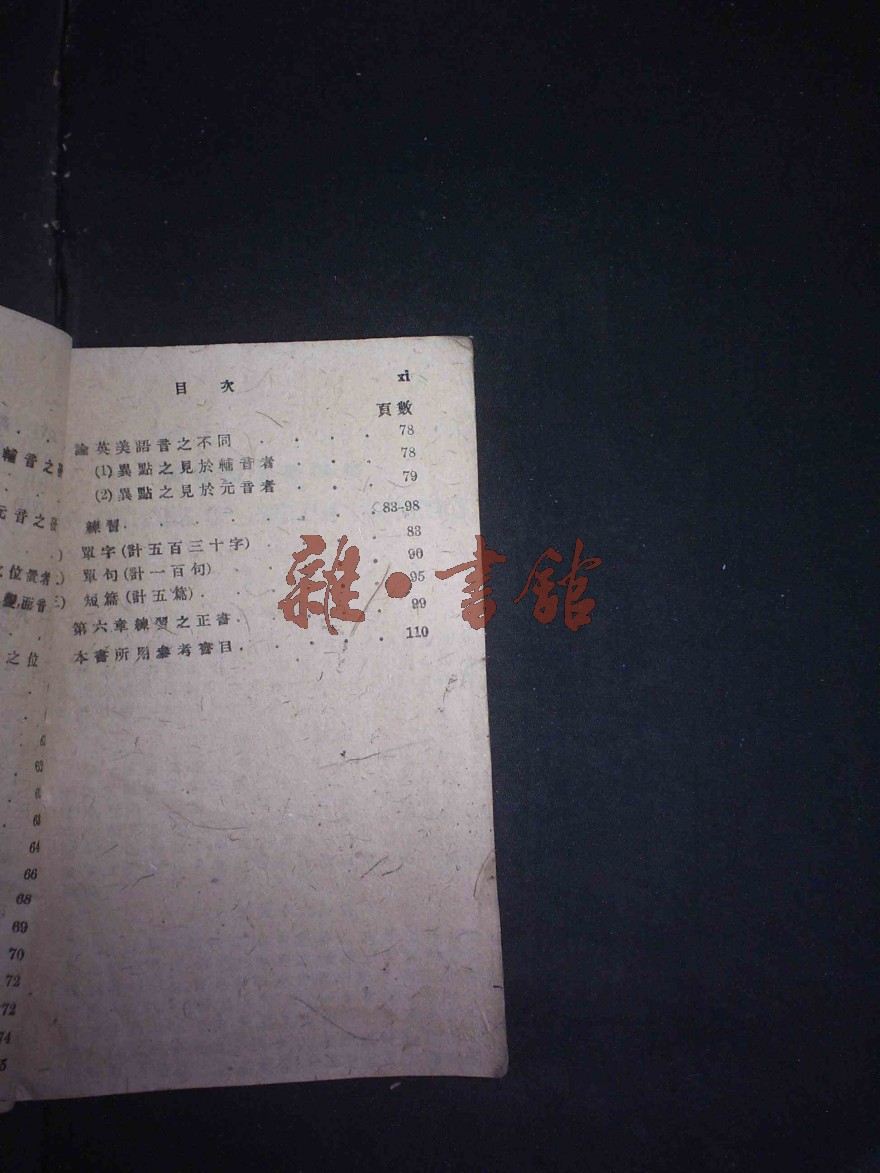 目次 xi
頁數
論英美語音之不同 . . . . . 78
(1)異點之見於輔音者 . . . . 78
(2)異點之見於元音者 . . . . 79
練習. . . . . . . . . . 83-98
單字(計五百三十字) . . . . . 83
單句(計一百句) . . . . . . 90
短篇(計五篇). . . . . . . 95
第六章練習之正書. . . . . . 99
本書所用參考書目. . . . . . 110
輔音之
元音之
之位置者.)
之位
62
63
64
66
68
69
70
72
72
74
雜·書館